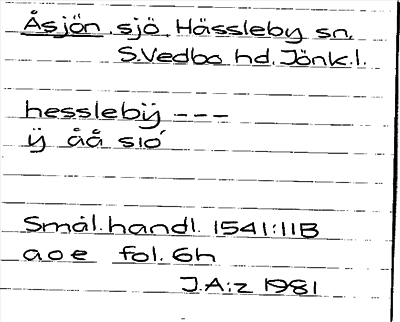 Åsjön, sjö, Hässleby sn,
S.Vedbo hd. Jönk.l.
hesslebÿ ---
ÿ åå sió
Smål.handl. 1541:11B
aoe fol. 6h
J.A:z 1981